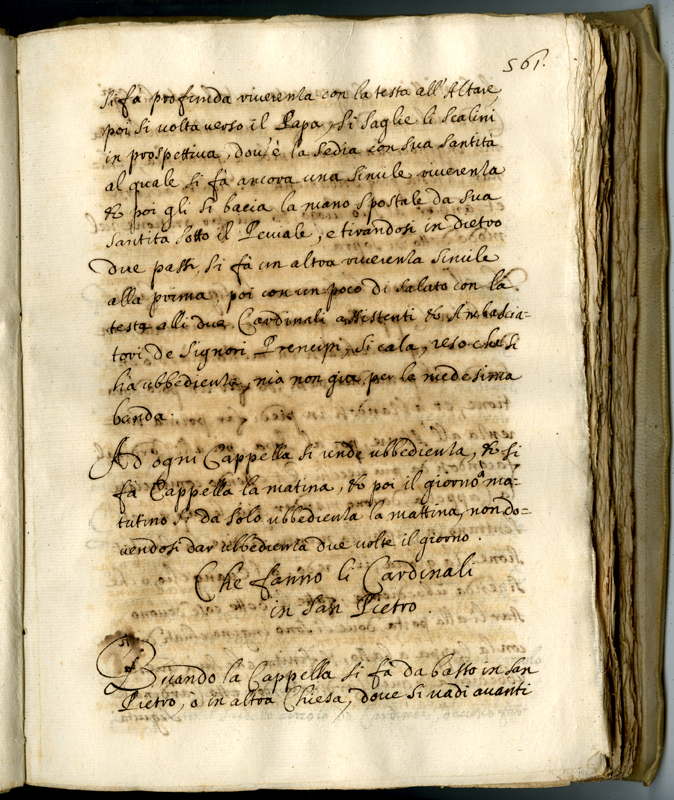 561.
si fa profunda riverenza con la testa all'Altare,
poi si volta verso il Papa, si saglie li scalini
in prospettiva, dov'è la sedia con sua santità
al quale si fà ancora una simile riverenza
& poi gli si bacia la mano spostale da sua
santità sotto il Peviale, e tirandosi in dietro
due passi, si fà un altra riverenza simile
alla prima, poi con un poco di salato con la
testa alli due Cardinali assistenti & Ambascia-
tori de Signori Prencipi, si cala, reso che si
hà ubbedienza, mà non già per la medesima
banda.
Ad ogni Cappella si rende ubbedienza, & si
fà Cappella la matina, & poi il giorno à ma-
tutino si da solo ubbedienza la mattina, non do-
vendosi dar ubbedienza due volte il giorno.
Che fanno li Cardinali
in San Pietro.
Quando la Cappella si fà da basso in San
Pietro, ò in altra Chiesa, dove si vadi avanti